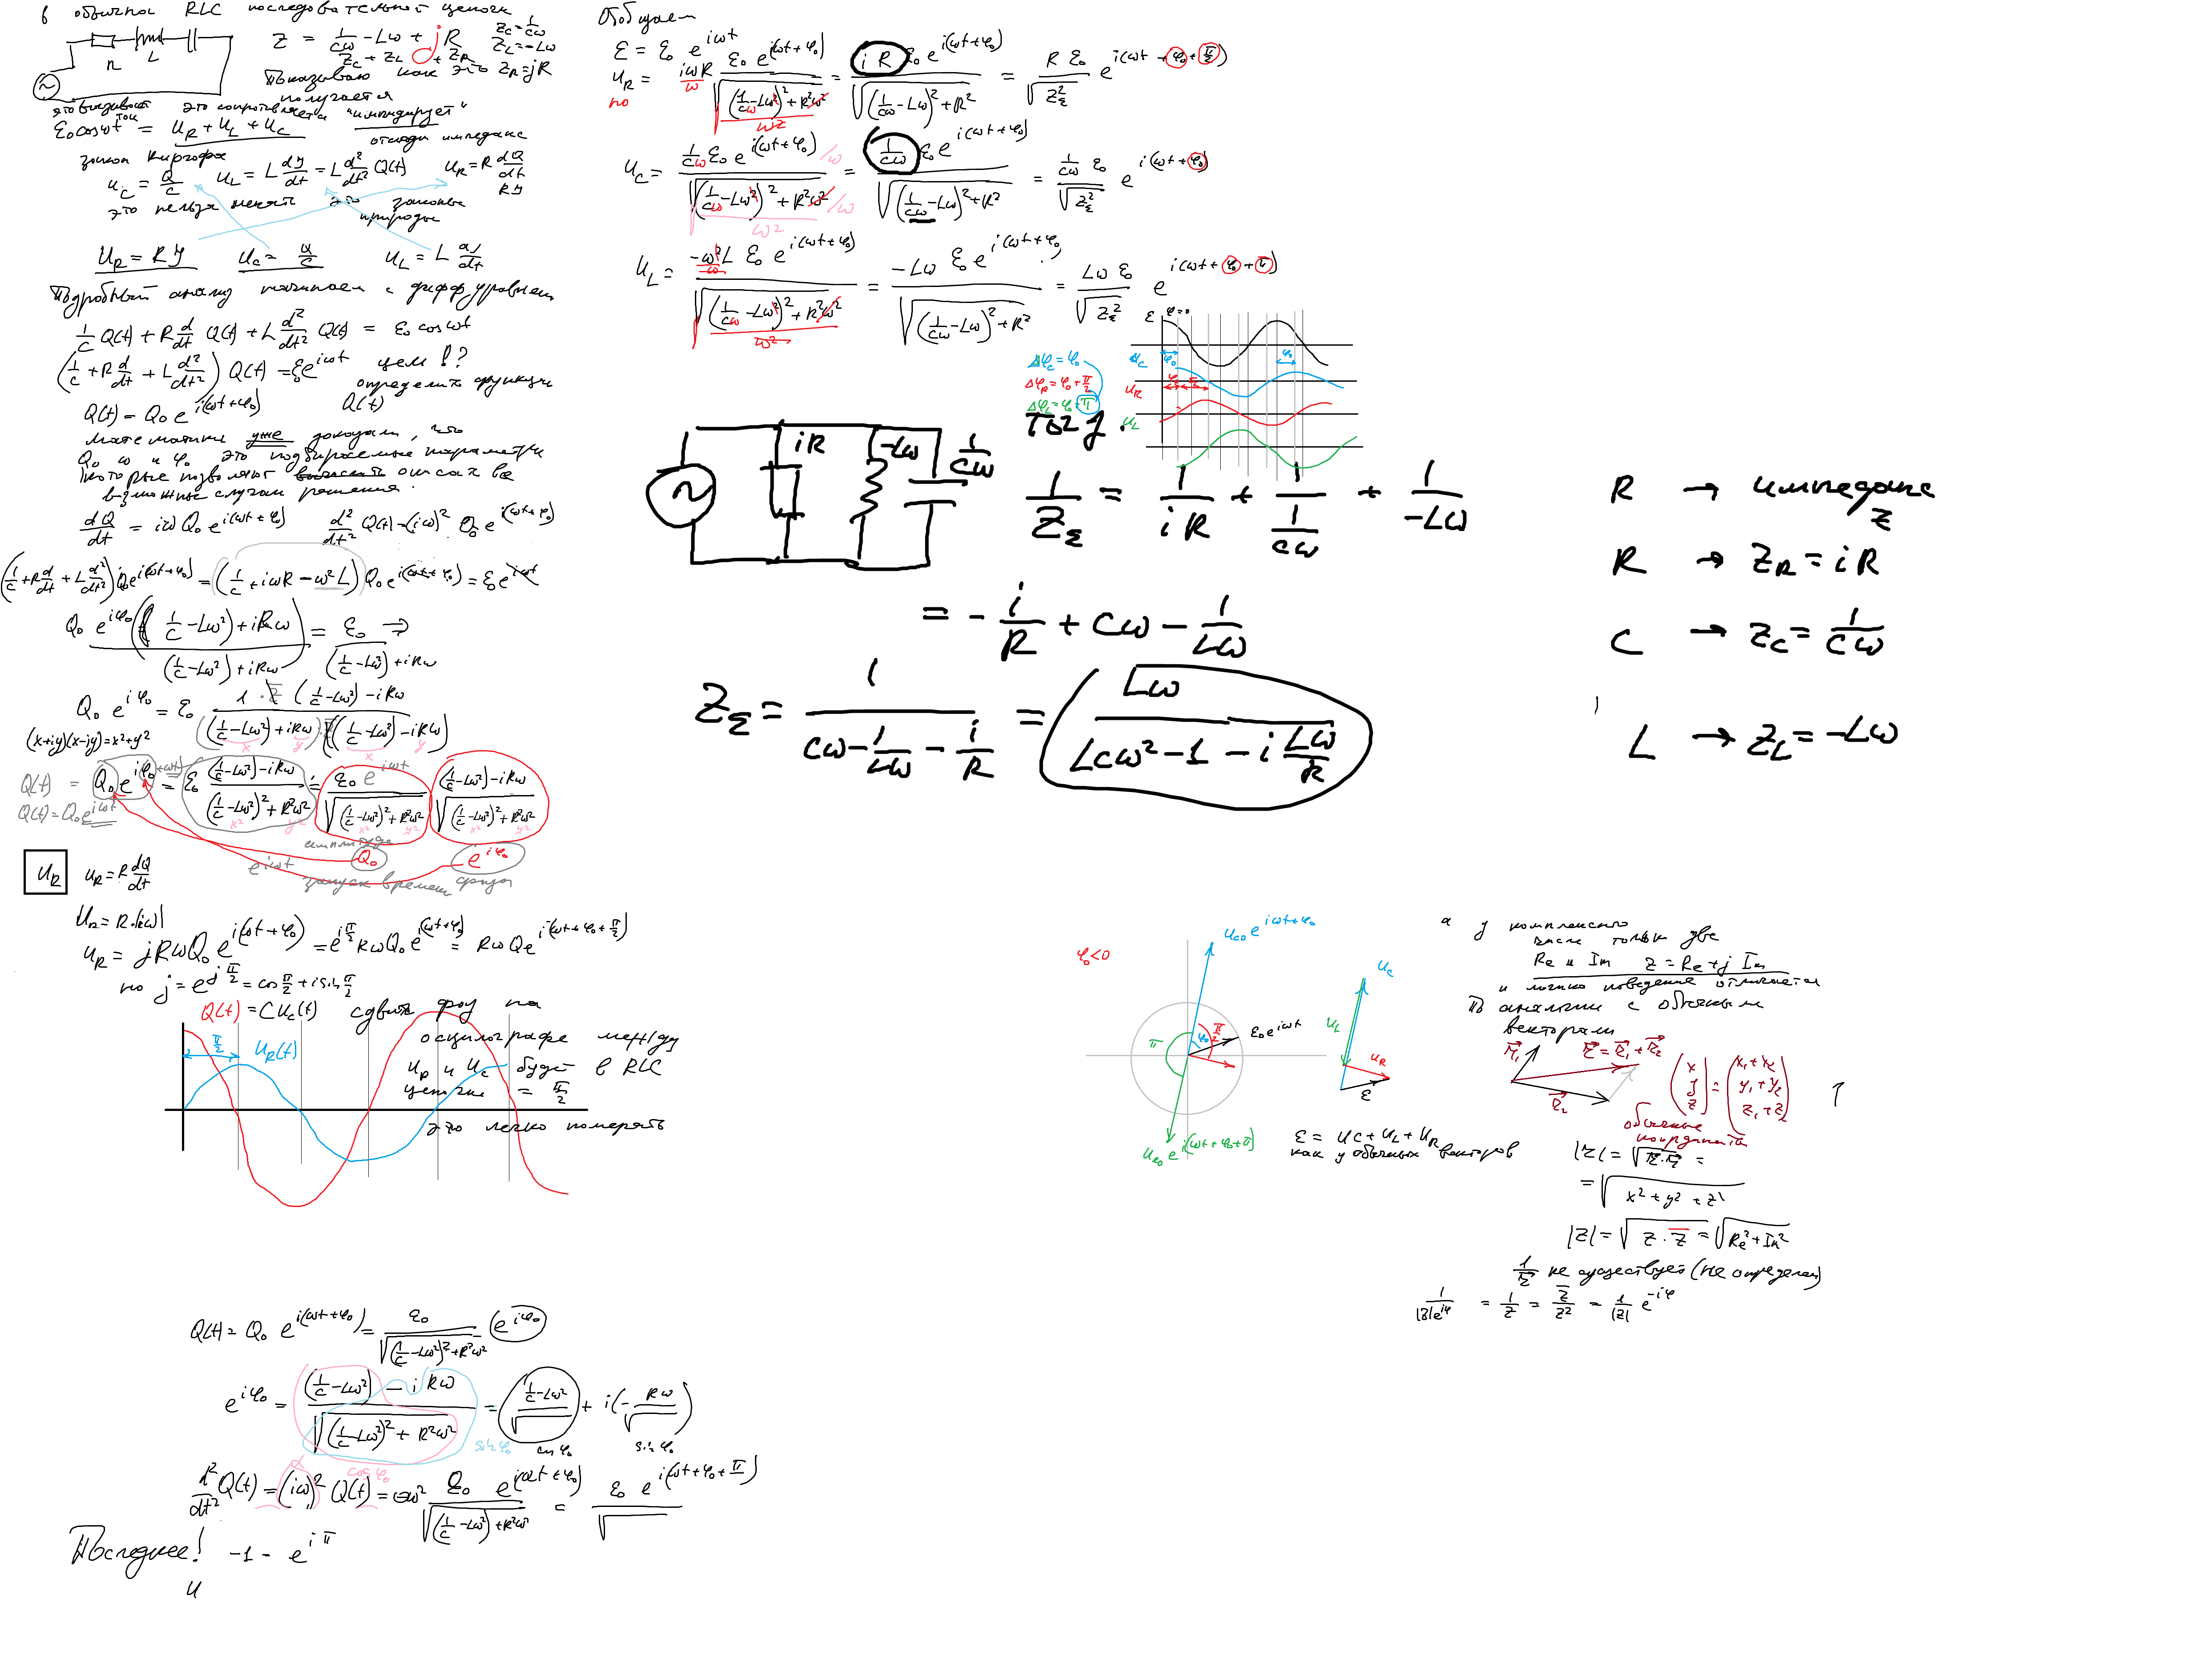 в обычной RLC последовательной цепочке
Z = 1/Cω - Lω + jR
Z_C + Z_L + Z_R
Z_C = 1/Cω
Z_L = -Lω
Z_R = jR
R L
Показываю как это
получается
это сопротивляется "импедирует"
ε₀cosωt = U_R + U_L + U_C
ток
отсюда импеданс
закон Кирхгофа
U_C = Q/C U_L = L dJ/dt = L d²/dt² Q(t) U_R = R dQ/dt
RJ
это нельзя менять это законы
природы
U_R = RJ U_C = Q/C U_L = L dJ/dt
Подробный анализ начинаем с дифф уравнен
1/C Q(t) + R d/dt Q(t) + L d²/dt² Q(t) = ε₀ cosωt
(1/C + R d/dt + L d²/dt²) Q(t) = ε₀e^{iωt} цель!?
определить функцию
Q(t) = Q₀ e^{i(ωt+φ₀)} Q(t)
математики уже доказали, что
Q₀ ω и φ₀ это подбираемые параметры
которые позволяют описать все
возможные случаи решения.
dQ/dt = iωQ₀ e^{i(ωt+φ₀)} d²/dt² Q(t) = (iω)² Q₀ e^{i(ωt+φ₀)}
(1/C + R d/dt + L d²/dt²) Q₀e^{i(ωt+φ₀)} = (1/C + iωR - ω²L) Q₀e^{i(ωt+φ₀)} = ε₀e^{iωt}
Q₀ e^{iφ₀} ((1/C - Lω²) + iRω) / ((1/C - Lω²) + iRω) = ε₀ / ((1/C - Lω²) + iRω) ⇒
Q₀ e^{iφ₀} = ε₀ 1·z̄ ((1/C - Lω²) - iRω) / ((1/C - Lω²) + iRω)((1/C - Lω²) - iRω)
x y x y
(x+iy)(x-jy) = x²+y²
Q(t) = Q₀ e^{i(φ₀+ωt)} = ε₀ ((1/C - Lω²) - iRω) / ((1/C - Lω²)² + R²ω²) = ε₀ e^{iωt} / √((1/C - Lω²)² + R²ω²) ((1/C - Lω²) - iRω) / √((1/C - Lω²)² + R²ω²)
x² y² x² y² x² y²
Q(t) = Q₀e^{iωt}
амплитуда
e^{iωt} Q₀ e^{iφ₀}
запуск времени фазы
U_R U_R = R dQ/dt
U_R = R·|iω|
U_R = jRωQ₀ e^{i(ωt+φ₀)} = e^{iπ/2} RωQ₀ e^{i(ωt+φ₀)} = RωQ e^{i(ωt+φ₀+π/2)}
но j = e^{jπ/2} = cos π/2 + i sin π/2
Q(t) = C U_C(t) сдвиг фаз на
осциллографе между
U_R и U_C будет в RLC
цепочке = π/2
это легко померять
π/2 U_R(t)
Q(t) = Q₀ e^{i(ωt+φ₀)} = ε₀ / √((1/C - Lω²)² + R²ω²) e^{iφ₀}
e^{iφ₀} = ((1/C - Lω²) - iRω) / √((1/C - Lω²)² + R²ω²) = (1/C - Lω²)/√ + i(- Rω/√)
sin φ₀ cos φ₀ sin φ₀
cos φ₀
d²/dt² Q(t) = (iω)² Q(t) = -ω² ε₀ e^{i(ωt+φ₀)} / √((1/C - Lω²) + R²ω²) = ε₀ e^{i(ωt+φ₀+π)} / √
Последнее! -1 = e^{iπ}
и
Обобщаем
ε = ε₀ e^{iωt}
U_R = (iωR/ω) ε₀ e^{i(ωt+φ₀)} / √(((1/Cω - Lω²)² + R²ω²)/ω²) = iR ε₀ e^{i(ωt+φ₀)} / √((1/Cω - Lω)² + R²) = R ε₀ / √Z_Σ² e^{i(ωt+φ₀+π/2)}
но
U_C = 1/Cω ε₀ e^{i(ωt+φ₀)} /ω / √((1/Cω - Lω²)² + R²ω²) /ω = 1/Cω ε₀ e^{i(ωt+φ₀)} / √((1/Cω - Lω)² + R²) = 1/Cω ε₀ / √Z_Σ² e^{i(ωt+φ₀)}
ω²
U_L = -ω²L/ω ε₀ e^{i(ωt+φ₀)} / √(((1/Cω - Lω²)² + R²ω²)/ω²) = -Lω ε₀ e^{i(ωt+φ₀)} / √((1/Cω - Lω)² + R²) = Lω ε₀ / √Z_Σ² e^{i(ωt+φ₀+π)}
ε φ=0
Δφ_C = φ₀
Δφ_R = φ₀ + π/2
Δφ_L = φ₀ + π
U_C φ₀ φ₀
U_R φ₀ π/2
U_L
iR -Lω 1/Cω
1/Z_Σ = 1/iR + 1/(1/Cω) + 1/-Lω
= - i/R + Cω - 1/Lω
Z_Σ = 1 / (Cω - 1/Lω - i/R) = Lω / (LCω² - 1 - i Lω/R)
R → импеданс
Z
R → Z_R = iR
C → Z_C = 1/Cω
L → Z_L = -Lω
φ₀<0
U_C0 e^{iωt+φ₀}
ε₀ e^{iωt}
π φ₀ π/2
U_L0 e^{i(ωt+φ₀+π)}
U_C U_L U_R ε
ε = U_C + U_L + U_R
как у обычных векторов
а у комплексного
числа только две
Re и Im z = Re + j Im
и только поведение отличается
По аналогии с обычными
векторами
r₁ r = r₁ + r₂
r₂
(x y z) = (x₁+x₂ y₁+y₂ z₁+z₂)
обычные
координаты
|r| = √(r·r) =
= √(x² + y² + z²)
|z| = √(z·z̄) = √(Re² + Im²)
1/r не существует (не определен)
1/|z|e^{iφ} = 1/z = z̄/z² = 1/|z| e^{-iφ}